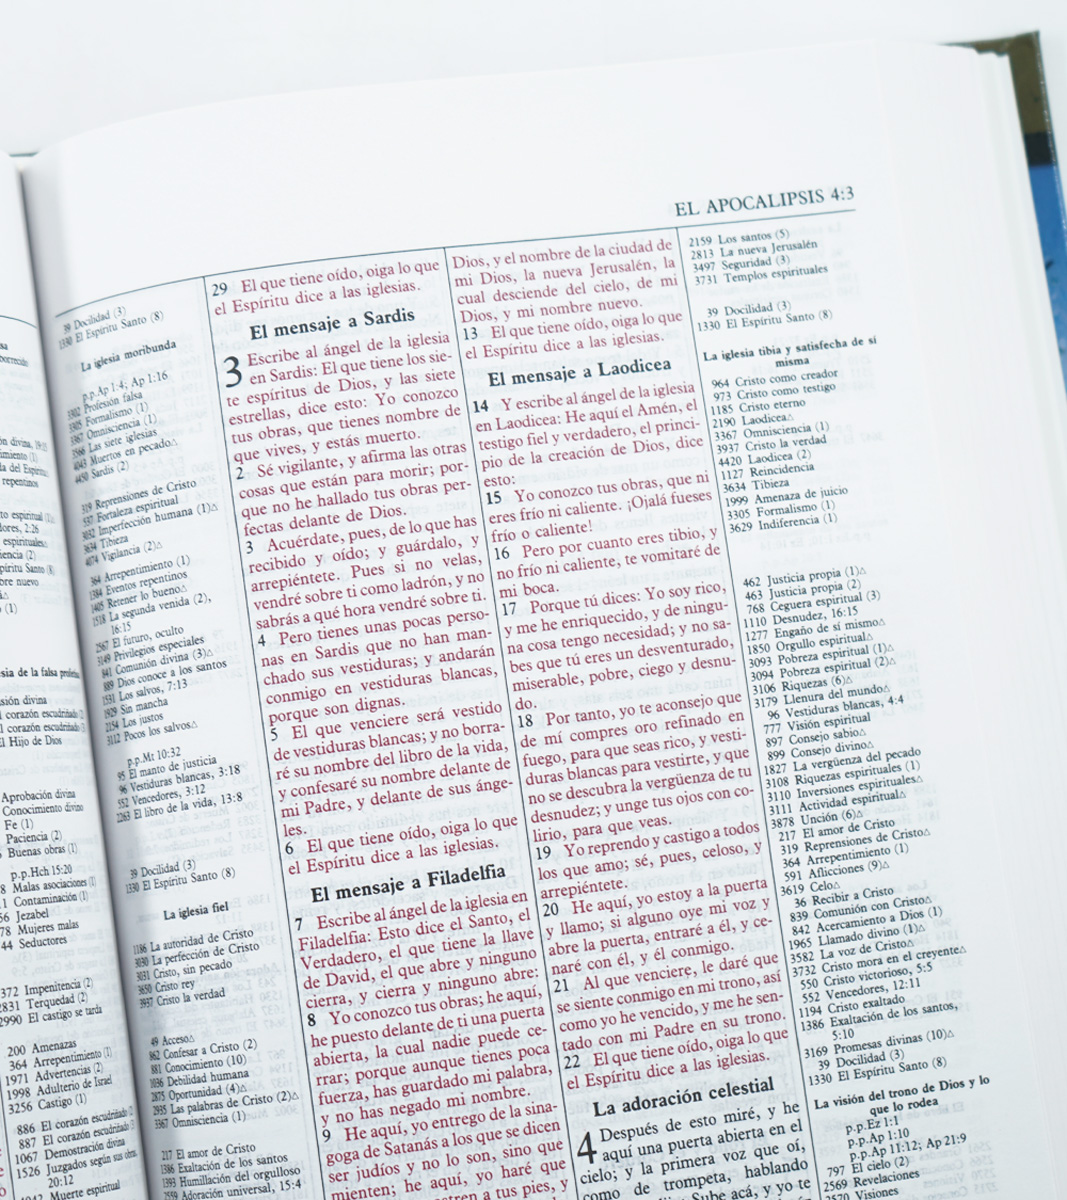 EL APOCALIPSIS 4:3
39 Docilidad (3)
1330 El Espíritu Santo (8)
La iglesia moribunda
p.p.Ap 1:4; Ap 1:16
3902 Profesión falsa
3305 Formalismo (1)
3367 Omnisciencia (1)
3566 Las siete iglesias
4043 Muertos en pecado△
4450 Sardis (2)
319 Reprensiones de Cristo
537 Fortaleza espiritual
3032 Imperfección humana (1)△
3634 Tibieza
4074 Vigilancia (2)△
364 Arrepentimiento (1)
1384 Eventos repentinos
1405 Retener lo bueno△
1518 La segunda venida (2),
16:15
2567 El futuro, oculto
3149 Privilegios especiales
841 Comunión divina (3)△
889 Dios conoce a los santos
1531 Los salvos, 7:13
1929 Sin mancha
2154 Los justos
3112 Pocos los salvos△
p.p.Mt 10:32
95 El manto de justicia
96 Vestiduras blancas, 3:18
552 Vencedores, 3:12
2363 El libro de la vida, 13:8
39 Docilidad (3)
1330 El Espíritu Santo (8)
La iglesia fiel
1186 La autoridad de Cristo
3030 La perfección de Cristo
3031 Cristo, sin pecado
3650 Cristo rey
3937 Cristo la verdad
49 Acceso△
862 Confesar a Cristo (2)
881 Conocimiento (10)
1036 Debilidad humana
2875 Oportunidad (4)△
2935 Las palabras de Cristo (2)△
3367 Omnisciencia (1)
217 El amor de Cristo
1386 Exaltación de los santos
1393 Humillación del orgulloso
2559 Adoración universal, 15:4
29 El que tiene oído, oiga lo que
el Espíritu dice a las iglesias.
El mensaje a Sardis
3 Escribe al ángel de la iglesia
en Sardis: El que tiene los sie-
te espíritus de Dios, y las siete
estrellas, dice esto: Yo conozco
tus obras, que tienes nombre de
que vives, y estás muerto.
2 Sé vigilante, y afirma las otras
cosas que están para morir; por-
que no he hallado tus obras per-
fectas delante de Dios.
3 Acuérdate, pues, de lo que has
recibido y oído; y guárdalo, y
arrepiéntete. Pues si no velas,
vendré sobre ti como ladrón, y no
sabrás a qué hora vendré sobre ti.
4 Pero tienes unas pocas perso-
nas en Sardis que no han man-
chado sus vestiduras; y andarán
conmigo en vestiduras blancas,
porque son dignas.
5 El que venciere será vestido
de vestiduras blancas; y no borra-
ré su nombre del libro de la vida,
y confesaré su nombre delante de
mi Padre, y delante de sus ánge-
les.
6 El que tiene oído, oiga lo que
el Espíritu dice a las iglesias.
El mensaje a Filadelfia
7 Escribe al ángel de la iglesia en
Filadelfia: Esto dice el Santo, el
Verdadero, el que tiene la llave
de David, el que abre y ninguno
cierra, y cierra y ninguno abre:
8 Yo conozco tus obras; he aquí,
he puesto delante de ti una puerta
abierta, la cual nadie puede ce-
rrar; porque aunque tienes poca
fuerza, has guardado mi palabra,
y no has negado mi nombre.
9 He aquí, yo entrego de la sina-
goga de Satanás a los que se dicen
ser judíos y no lo son, sino que
mienten; he aquí, yo haré que
a tus pies, y
Dios, y el nombre de la ciudad de
mi Dios, la nueva Jerusalén, la
cual desciende del cielo, de mi
Dios, y mi nombre nuevo.
13 El que tiene oído, oiga lo que
el Espíritu dice a las iglesias.
El mensaje a Laodicea
14 Y escribe al ángel de la iglesia
en Laodicea: He aquí el Amén, el
testigo fiel y verdadero, el princi-
pio de la creación de Dios, dice
esto:
15 Yo conozco tus obras, que ni
eres frío ni caliente. ¡Ojalá fueses
frío o caliente!
16 Pero por cuanto eres tibio, y
no frío ni caliente, te vomitaré de
mi boca.
17 Porque tú dices: Yo soy rico,
y me he enriquecido, y de ningu-
na cosa tengo necesidad; y no sa-
bes que tú eres un desventurado,
miserable, pobre, ciego y desnu-
do.
18 Por tanto, yo te aconsejo que
de mí compres oro refinado en
fuego, para que seas rico, y vesti-
duras blancas para vestirte, y que
no se descubra la vergüenza de tu
desnudez; y unge tus ojos con co-
lirio, para que veas.
19 Yo reprendo y castigo a todos
los que amo; sé, pues, celoso, y
arrepiéntete.
20 He aquí, yo estoy a la puerta
y llamo; si alguno oye mi voz y
abre la puerta, entraré a él, y ce-
naré con él, y él conmigo.
21 Al que venciere, le daré que
se siente conmigo en mi trono, así
como yo he vencido, y me he sen-
tado con mi Padre en su trono.
22 El que tiene oído, oiga lo que
el Espíritu dice a las iglesias.
La adoración celestial
4 Después de esto miré, y he
aquí una puerta abierta en el
cielo; y la primera voz que oí,
como de trompeta, hablando
Sube acá, y yo te
2159 Los santos (5)
2813 La nueva Jerusalén
3497 Seguridad (3)
3731 Templos espirituales
39 Docilidad (3)
1330 El Espíritu Santo (8)
La iglesia tibia y satisfecha de sí
misma
964 Cristo como creador
973 Cristo como testigo
1185 Cristo eterno
2190 Laodicea△
3367 Omnisciencia (1)
3937 Cristo la verdad
4420 Laodicea (2)
1127 Reincidencia
3634 Tibieza
1999 Amenaza de juicio
3305 Formalismo (1)
3629 Indiferencia (1)
462 Justicia propia (1)△
463 Justicia propia (2)
768 Ceguera espiritual (3)
1110 Desnudez, 16:15
1277 Engaño de sí mismo△
1850 Orgullo espiritual△
3093 Pobreza espiritual (1)△
3094 Pobreza espiritual (2)△
3106 Riquezas (6)△
3179 Llenura del mundo△
96 Vestiduras blancas, 4:4
777 Visión espiritual
897 Consejo sabio△
899 Consejo divino△
1827 La vergüenza del pecado
3108 Riquezas espirituales (1)
3110 Inversiones espirituales△
3111 Actividad espiritual△
3878 Unción (6)△
217 El amor de Cristo
319 Reprensiones de Cristo△
364 Arrepentimiento (1)
591 Aflicciones (9)△
3619 Celo△
36 Recibir a Cristo
839 Comunión con Cristo△
842 Acercamiento a Dios (1)
1965 Llamado divino (1)△
3582 La voz de Cristo△
3732 Cristo mora en el creyente△
550 Cristo victorioso, 5:5
552 Vencedores, 12:11
1194 Cristo exaltado
1386 Exaltación de los santos,
5:10
3169 Promesas divinas (10)△
39 Docilidad (3)
1330 El Espíritu Santo (8)
La visión del trono de Dios y lo
que lo rodea
p.p.Ez 1:1
p.p.Ap 1:10
p.p.Ap 11:12; Ap 21:9
797 El cielo (2)
2569 Revelaciones
Visiones